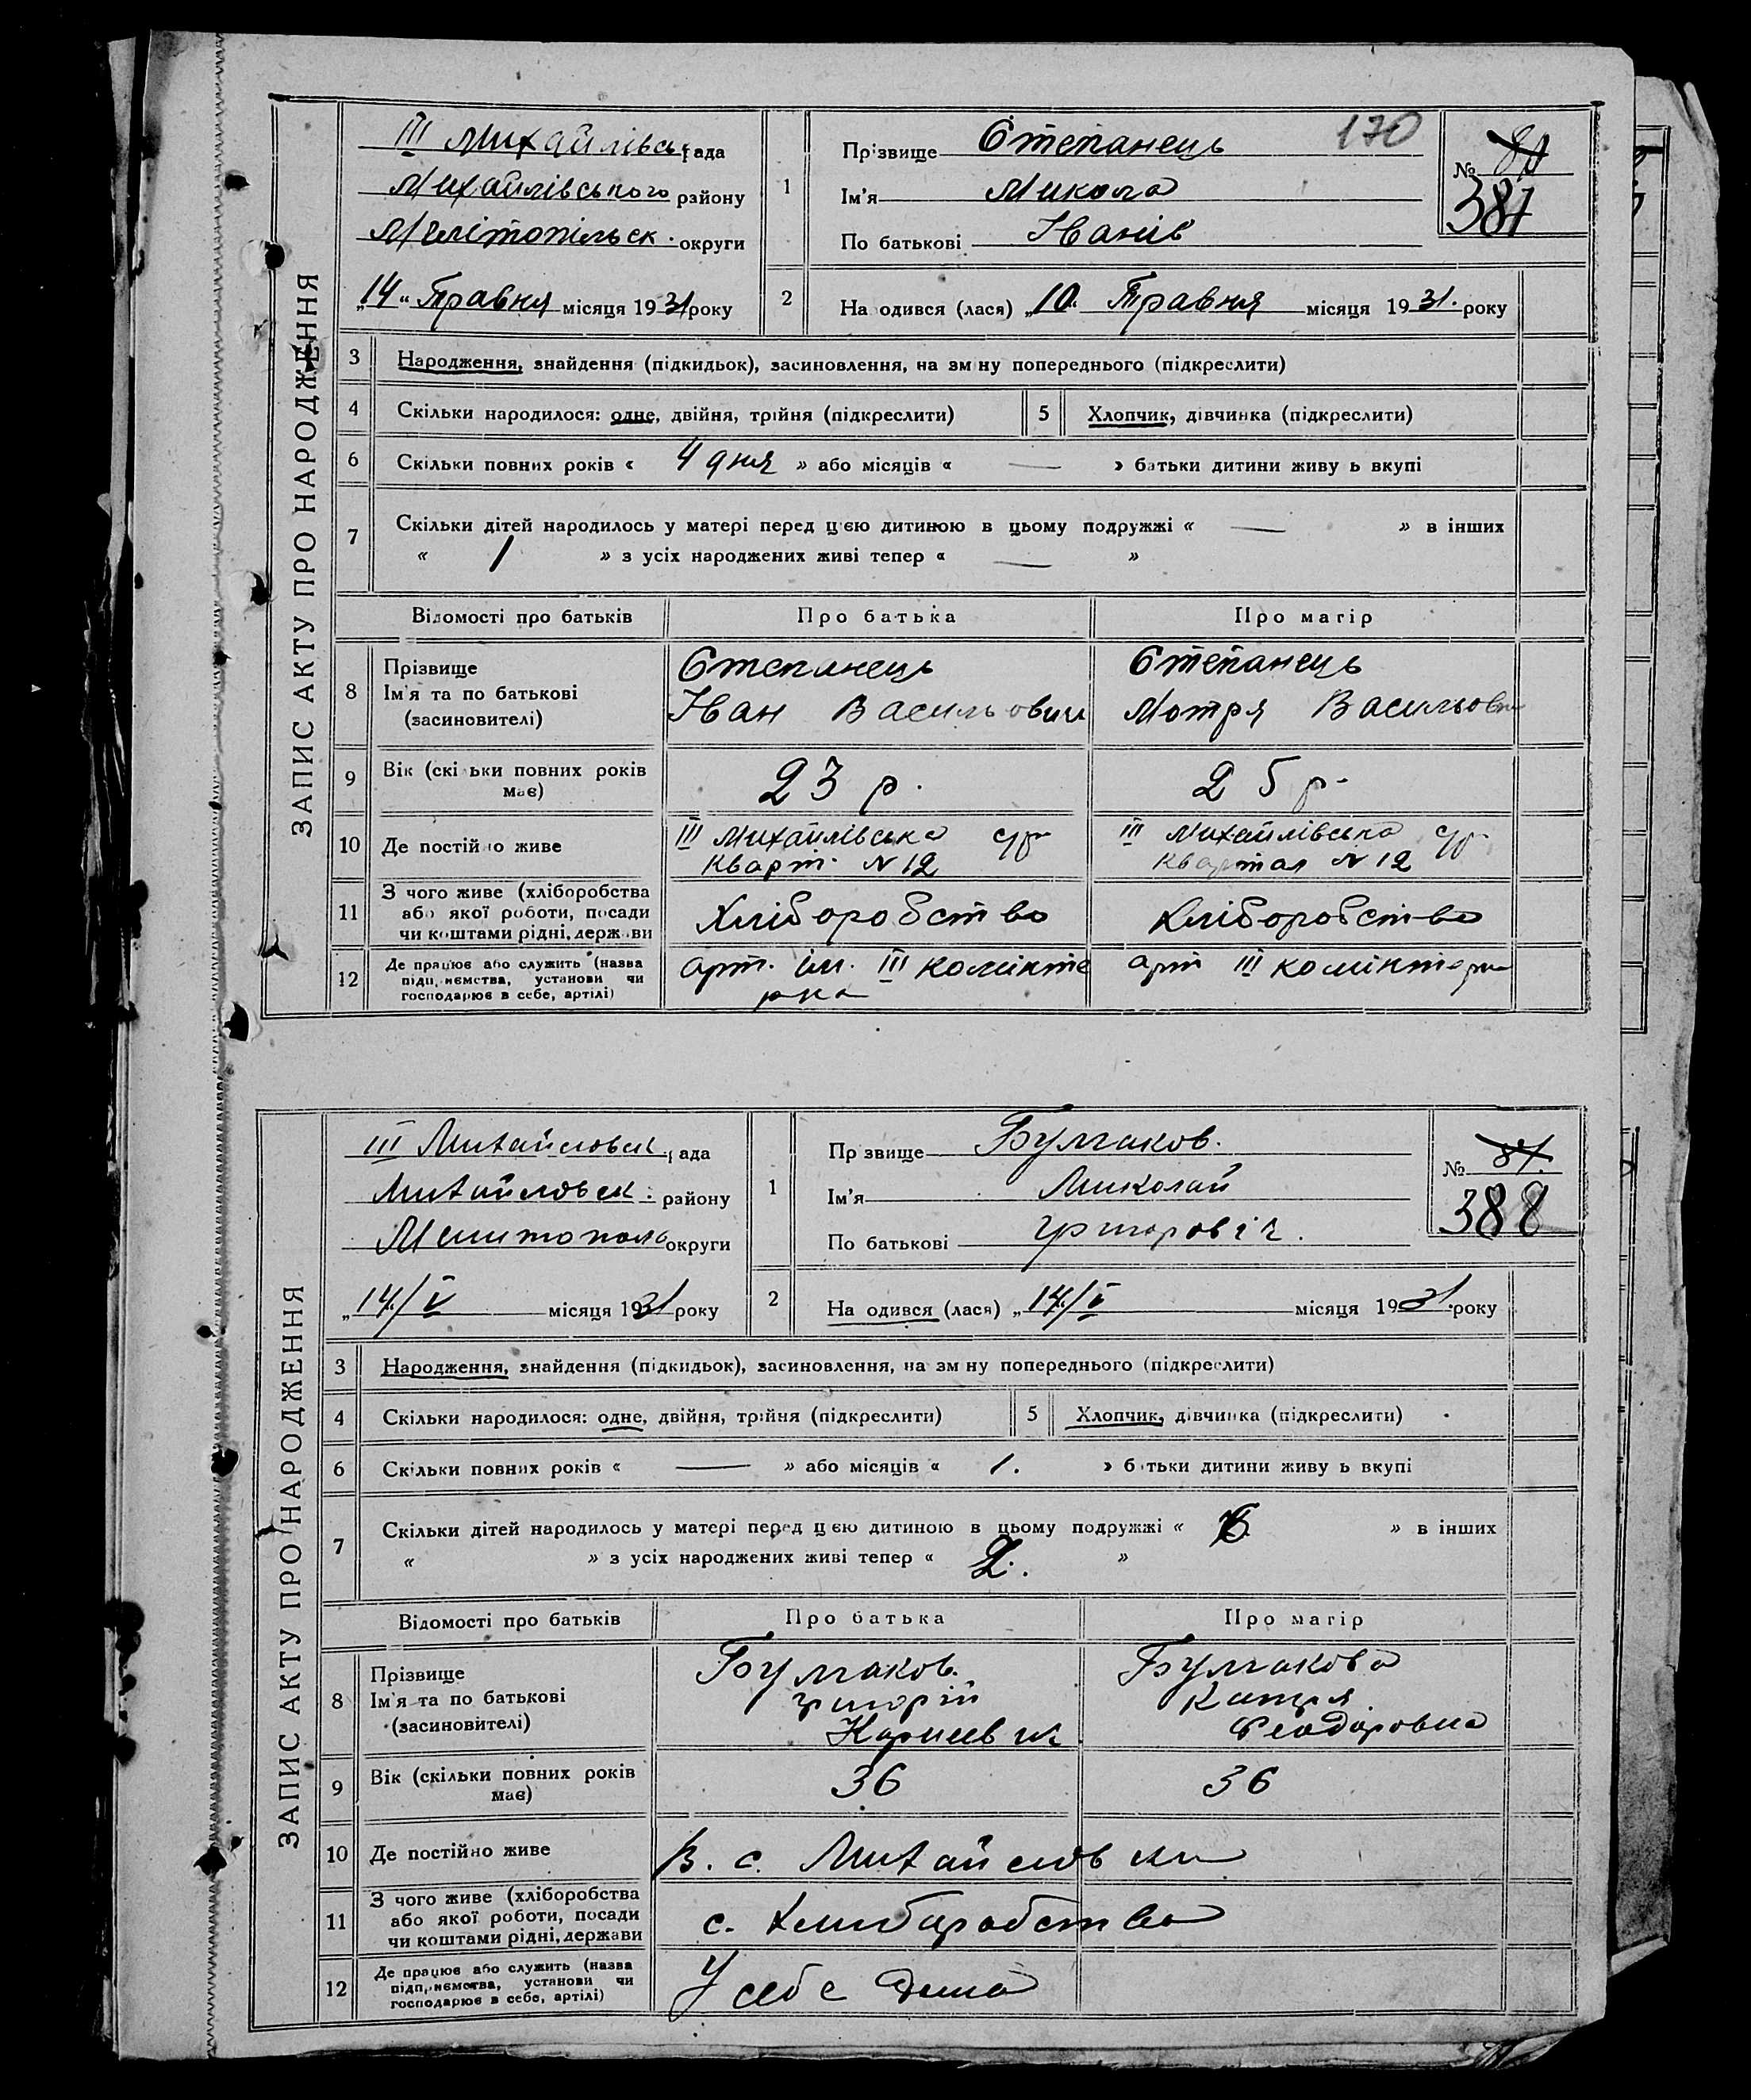 ЗАПИС АКТУ ПРО НАРОДЖЕННЯ
III Михайлівськ рада
Михайлівського району
Мелітопільськ. округи
„14“ Травня місяця 1931 року
1
Прізвище Степанець 170
Ім'я Микола
По батькові Іванів
№
387
2 На одився (лася) „10. Травня місяця 1931. року
3 Народження, знайдення (підкидьок), засиновлення, на зм ну попереднього (підкреслити)
4 Скільки народилося: одне, двійня, трійня (підкреслити) 5 Хлопчик, дівчинка (підкреслити)
6 Скільки повних років « 4 дня » або місяців « — » батьки дитини живу ь вкупі
7 Скільки дітей народилось у матері перед цією дитиною в цьому подружжі « — » в інших
« 1 » з усіх народжених живі тепер « — »
Відомості про батьків Про батька Про матір
8 Прізвище Ім'я та по батькові (засиновителі)
Степанець Іван Васильович
Степанець Мотря Васильовн
9 Вік (скі ьки повних років має) 23 р. 25 р.
10 Де постійно живе
III Михайлівська с/р кварт. N 12
III Михайлівська с/р квартал N 12
11 З чого живе (хліборобства або якої роботи, посади чи коштами рідні, держави
Хліборобство Хліборобство
12 Де працює або служить (назва підп, иємства, установи чи господарює в себе, артілі)
арт. ім. III комінтерна
арт III комінтерн
ЗАПИС АКТУ ПРО НАРОДЖЕННЯ
III Михайловск рада
Михайловск. району
Мелитополь округи
„14/V місяця 1931 року
1
Пр звище Булгаков.
Ім'я Миколай
По батькові Григоровіч.
№ 81.
388
2 На одився (лася) „14/V місяця 1931. року
3 Народження, знайдення (підкидьок), засиновлення, на зм ну попереднього (підкреслити)
4 Скільки народилося: одне, двійня, трійня (підкреслити) 5 Хлопчик, дівчинка (підкреслити)
6 Скільки повних років « — » або місяців « 1. » б тьки дитини живу ь вкупі
7 Скільки дітей народилось у матері перед цією дитиною в цьому подружжі « » в інших
« » з усіх народжених живі тепер « 2. »
Відомості про батьків Про батька Про матір
8 Прізвище Ім'я та по батькові (засиновителі)
Булгаков. Григорій
Булгакова Феодоровна
9 Вік (скільки повних років має) 36 36
10 Де постійно живе В. с. Михайловки
11 З чого живе (хліборобства або якої роботи, посади чи коштами рідні, держави
с. Хлиборобство
12 Де працює або служить (назва підп, иємства, установи чи господарює в себе, артілі)
У себе дома